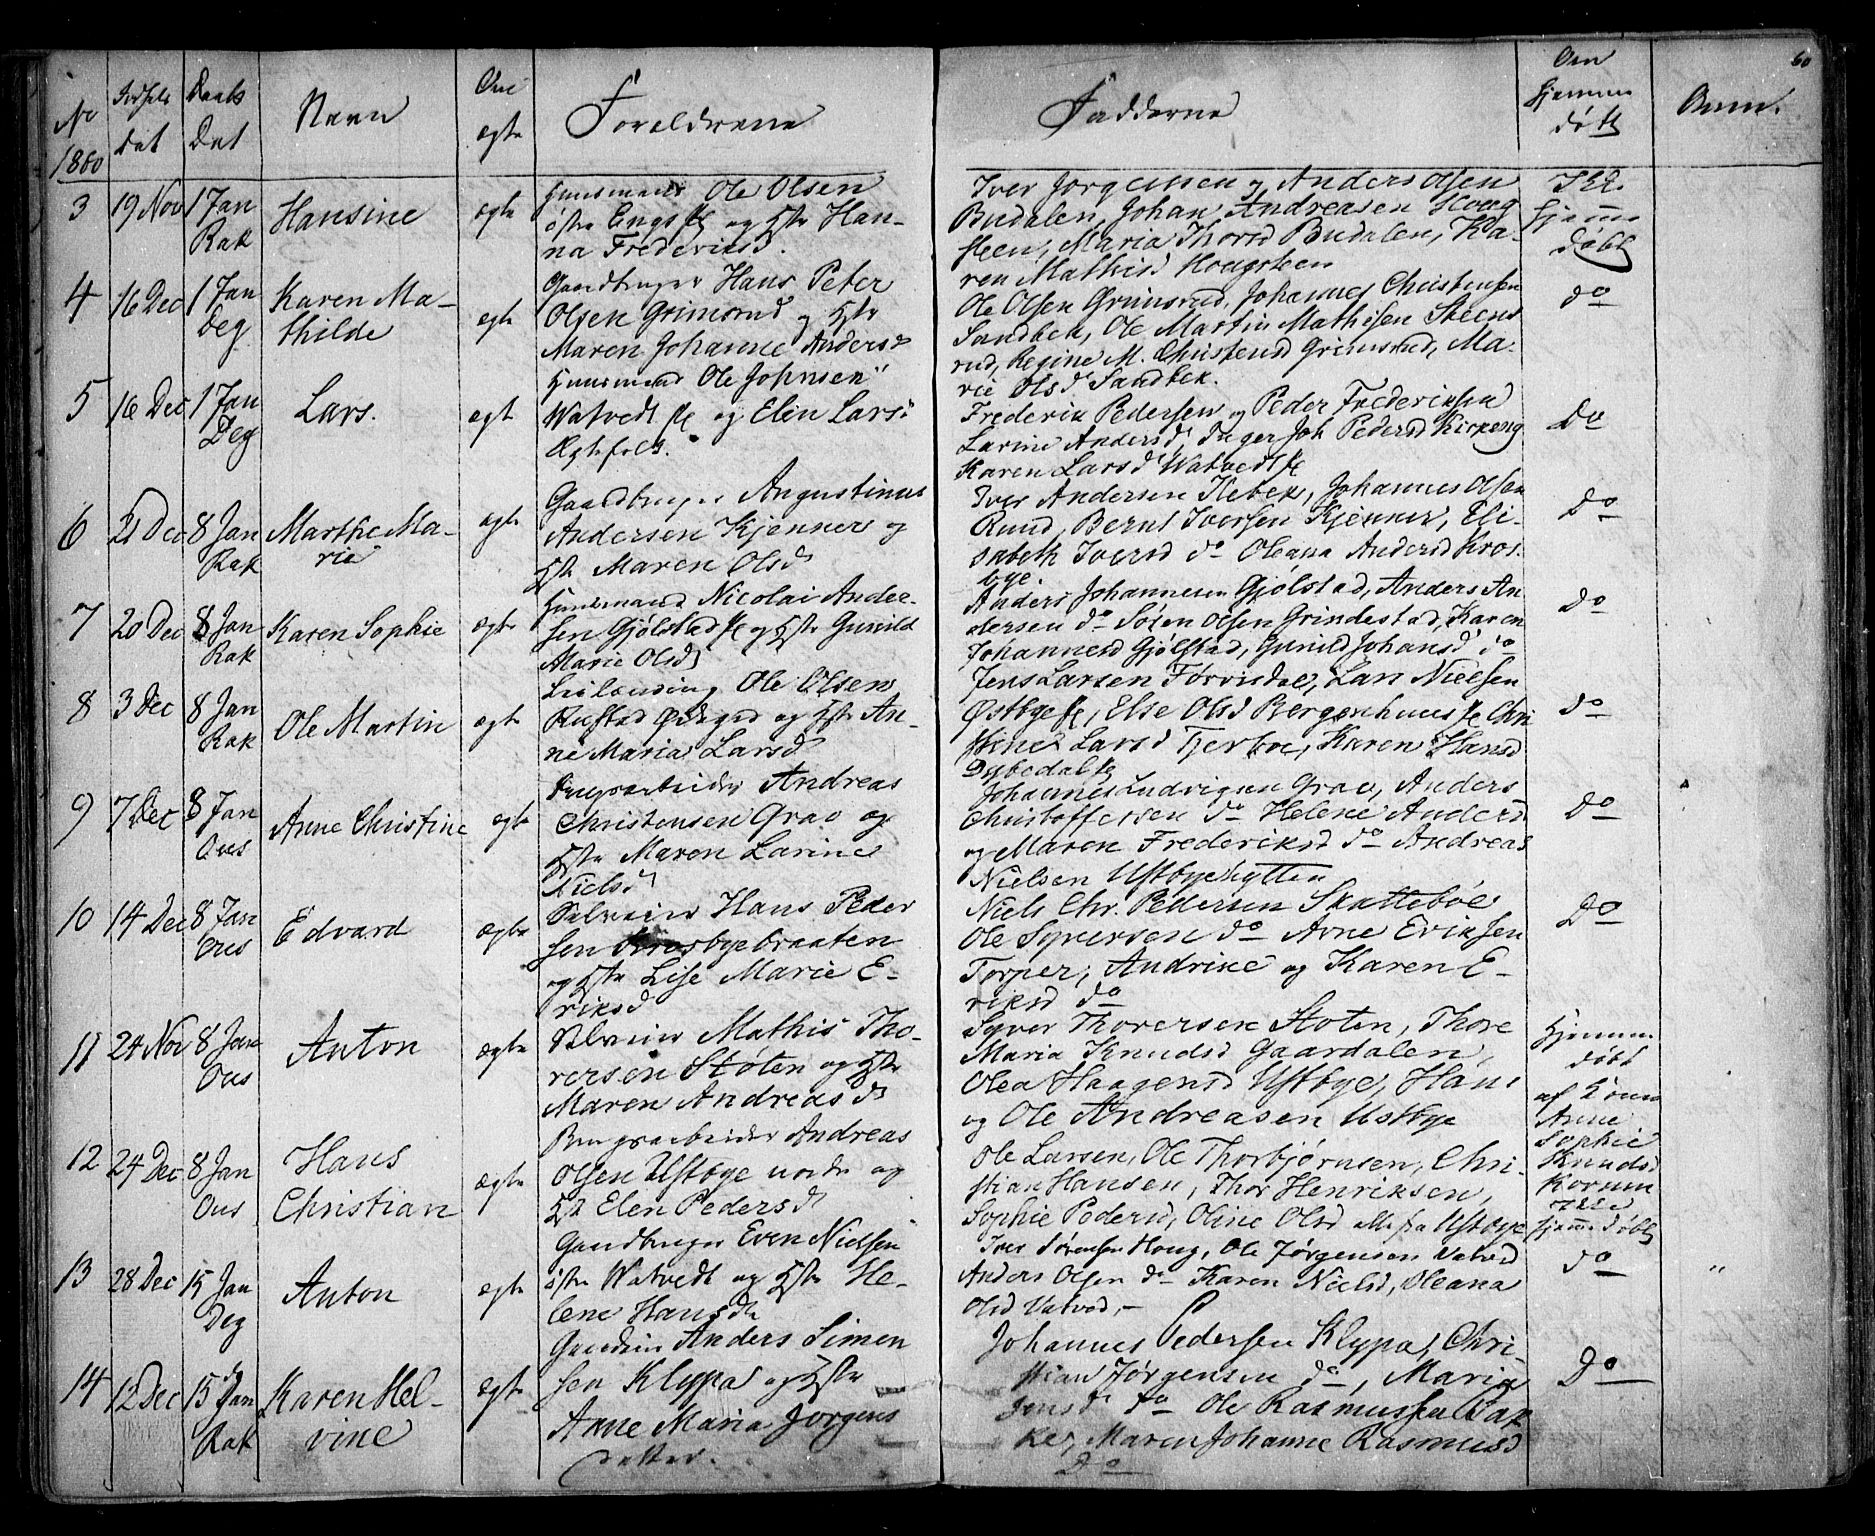 60
No Fødsels Daabs Navn Om Forældrene Fadderne Om hjemme Anm.
1860 dat Dat ægte døbt
3 19 Nov 1 Jan Hansine ægte Huusmand Ole Olsen
Rak østre Engs /e og Hstr Han-
na Frederiksd.
Iver Jørgensen og Anders Olsen
Budalen, Johan Andreasen Houg
steen, Maria Thorsd Budalen, Ka-
ren Mathisd Hougsteen
Ikke
hjemme
døbt
4 16 Dec 1 Jan Karen Ma- ægte Gaardbruger Hans Peter
Deg thilde Olsen Grimsrud og Hstr
Maren Johanne Andersd
Ole Olsen Grimsrud, Johannes Christensen
Sandbek, Ole Martin Mathisen Steens
rud, Regine M. Christensd Grimsrud, Ma-
rie Olsd Sandbek.
do
5 16 Dec 1 Jan Lars. ægte Huusmand Ole Johnsen
Deg Watvedt /e og Elen Larsd
Ægtefolk.
Frederik Pedersen og Peder Frederiksen
Larine Andersd, Inger Joh Pedersd Kirkeng
Karen Larsd Watvedt /e
Do
6 21 Dec 8 Jan Marthe Ma- ægte Gaardbruger Augustinus
Rak rie Andersen Kjenner og
Hstr Maren Olsd
Iver Andersen Kebek, Johannes Olsen
Ruud, Bernt Iversen Kjenner, Eli-
sabeth Iversd do Oleana Andersd Kros-
bye.
Do
7 20 Dec 8 Jan Karen Sophie ægte Huusmand Nicolai Ander-
Rak sen Gjølstad /e og Hstr Gunild
Marie Olsd
Anders Johannesen Gjølstad, Anders An
dersen do Søren Olsen Grindestad, Karen
Johannesd Gjølstad, Gunild Johansd do
Do
8 3 Dec 8 Jan Ole Martin ægte Leilænding Ole Olsen
Rak Rustad Ødegrd og Hstr An-
ne Maria Larsd
Jens Larsen Førrisdal, Lars Nielsen
Østbye /e, Else Olsd Bergenhuus /e Chri
stine Larsd Tjerboe, Karen Hansd
Dybedal /e
do
9 7 Dec 8 Jan Anne Christine ægte Brugsarbeider Andreas
Ous Christensen Grav og
Hstr Maren Larine
Nielsd
Johannes Ludvigsen Grav, Anders
Christoffersen do Helene Andersd
og Maren Frederiksd do Andreas
Nielsen Ustbyehytten
Do
10 14 Dec 8 Jan Edvard ægte Selveier Hans Peder
Ous sen Krosbyebraaten
og Hstr Lise Marie E-
riksd
Niels Chr. Pedersen Skattebøe
Ole Syversen do Arne Eriksen
Torper, Andrine og Karen E-
riksd do
Do
11 24 Nov 8 Jan Anton ægte Selveier Mathis Tho-
Ous rersen Støten og Hstr
Maren Andreasd
Syver Thorersen Støten, Thore
Maria Knudsd Gaardalen,
Olea Haagensd Ustbye, Hans
og Ole Andreasen Ustbye
Hjemme
døbt
af Kone
Anne
Sophie
Knudsd
12 24 Dec 8 Jan Hans ægte Brugsarbeider Andreas
Ous Christian Olsen Ustbye nordr og
Hstr Elen Pedersd
Ole Larsen, Ole Thorbjørnsen, Chri-
stian Hansen, Thor Henriksen,
Sophie Pedersd, Oline Olsd alle fra Ustbye
hjemmedøbt
13 28 Dec 15 Jan Anton ægte Gaardbruger Even Nielsen
Deg østre Watvedt og Hstr He-
lene Hansd
Iver Sørensen Houg, Ole Jørgensen Vatved
Anders Olsen do Karen Nielsd, Oleana
Olsd Vatved, -
do "
14 12 Dec 15 Jan Karen Hel- ægte Gaardm Anders Simen
Rak vine sen Klypa og Hstr
Anne Maria Jørgens
datter.
Johannes Pedersen Klypa, Chri-
stian Jørgensen do, Maria
Jensd do Ole Rasmussen Bak
ke, Maren Johanne Rasmusd
Do
Do